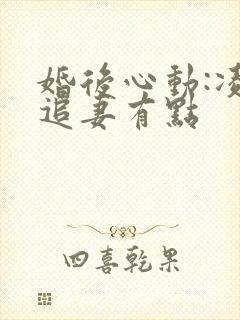 婚後心動:凌
追妻有點
四喜乾果